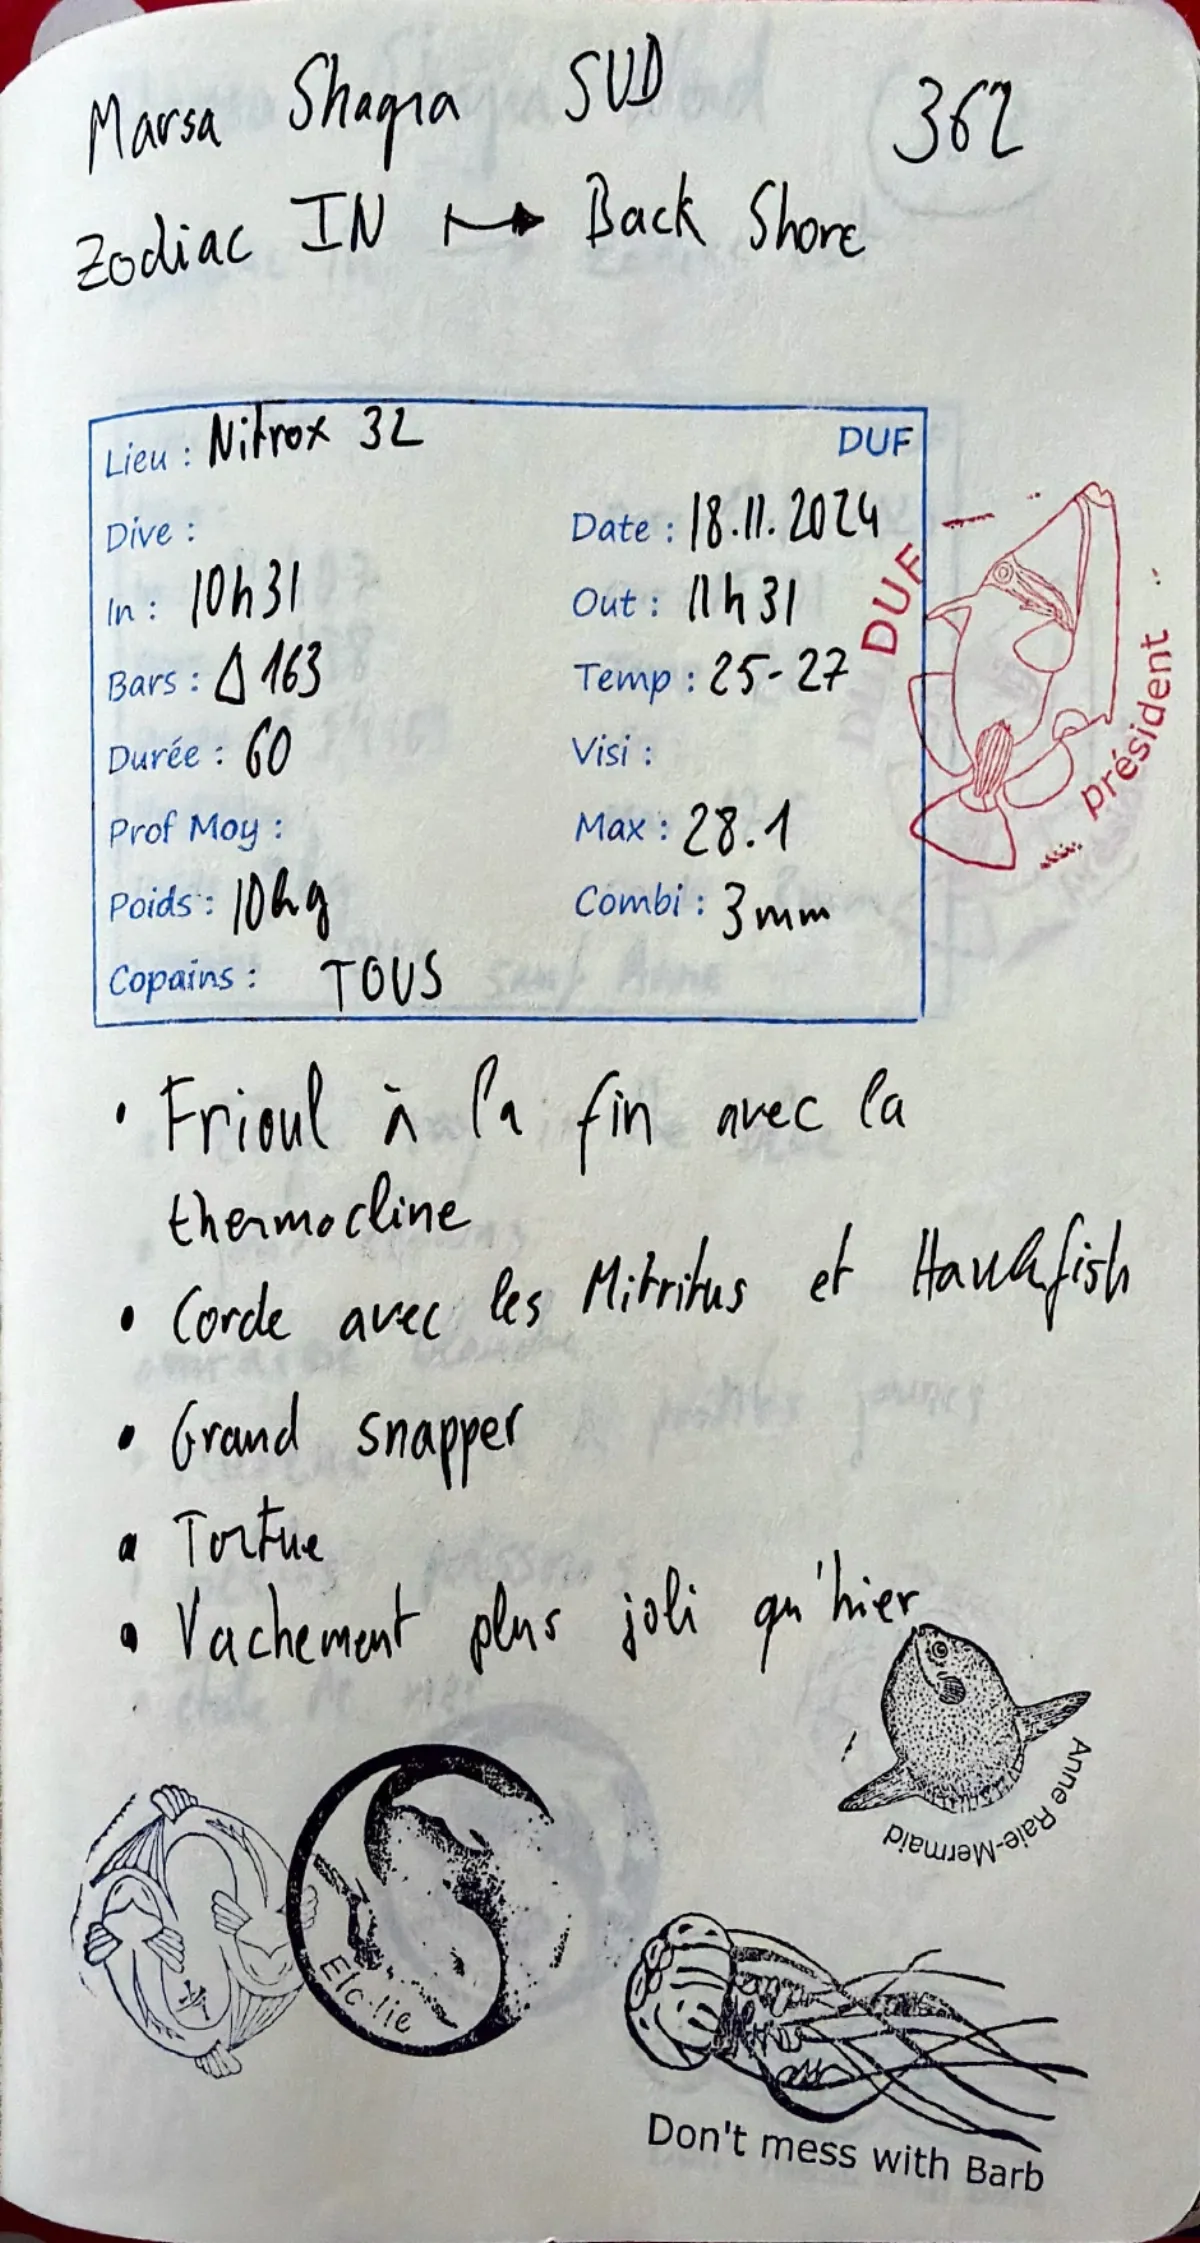 Marsa Shagra SUD 362
Zodiac IN ↦ Back Shore
Lieu : Nitrox 32 DUF
Dive : Date : 18.11.2024
In : 10h31 Out : 11h31
Bars : Δ 163 Temp : 25-27
Durée : 60 Visi :
Prof Moy : Max : 28.1
Poids : 10kg Combi : 3mm
Copains : TOUS
DUF
président
• Frioul à la fin avec la
thermocline
• Corde avec les Mitritus et Hawkfish
• Grand snapper
• Tortue
• Vachement plus joli qu'hier
Anne Raie-Mermaid
Elo-lie
Don't mess with Barb